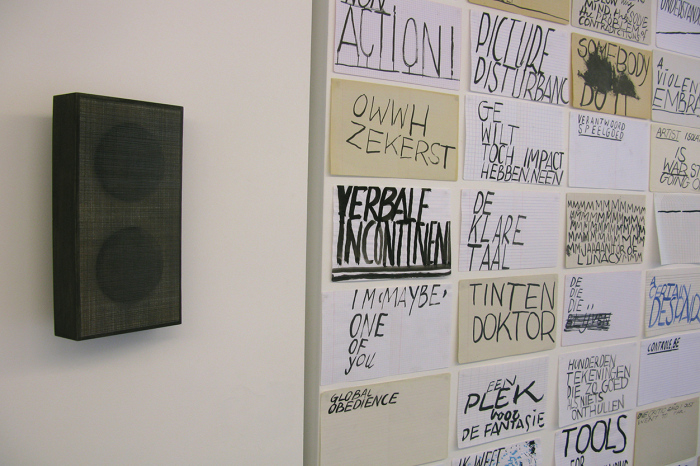 ACTION!
PICTURE
DISTURBANC
SOMEBODY
DO IT
A
VIOLEN
EMBR
MIND,
UNDERSTAN
OWWH
ZEKERST
GE
WILT
TOCH IMPACT
HEBBEN, NEEN
VERANTWOORD
SPEELGOED
ARTIST
IS
WAR, ST
GOING O
VERBALE
INCONTINEN
DE
KLARE
TAAL
LUNACY
I'M 'MAYBE'
ONE
OF
YOU
TINTEN
DOKTOR
DE
DIE
DIE
A
CERTAIN
GLOBAL
OBEDIENCE
EEN
PLEK
VOOR
DE FANTASIE
HONDERDEN
TEKENINGEN
DIE ZO GOED
ALS NIETS
ONTHULLEN
CONTROLE.BE
IK WEET
TOOLS
FOR